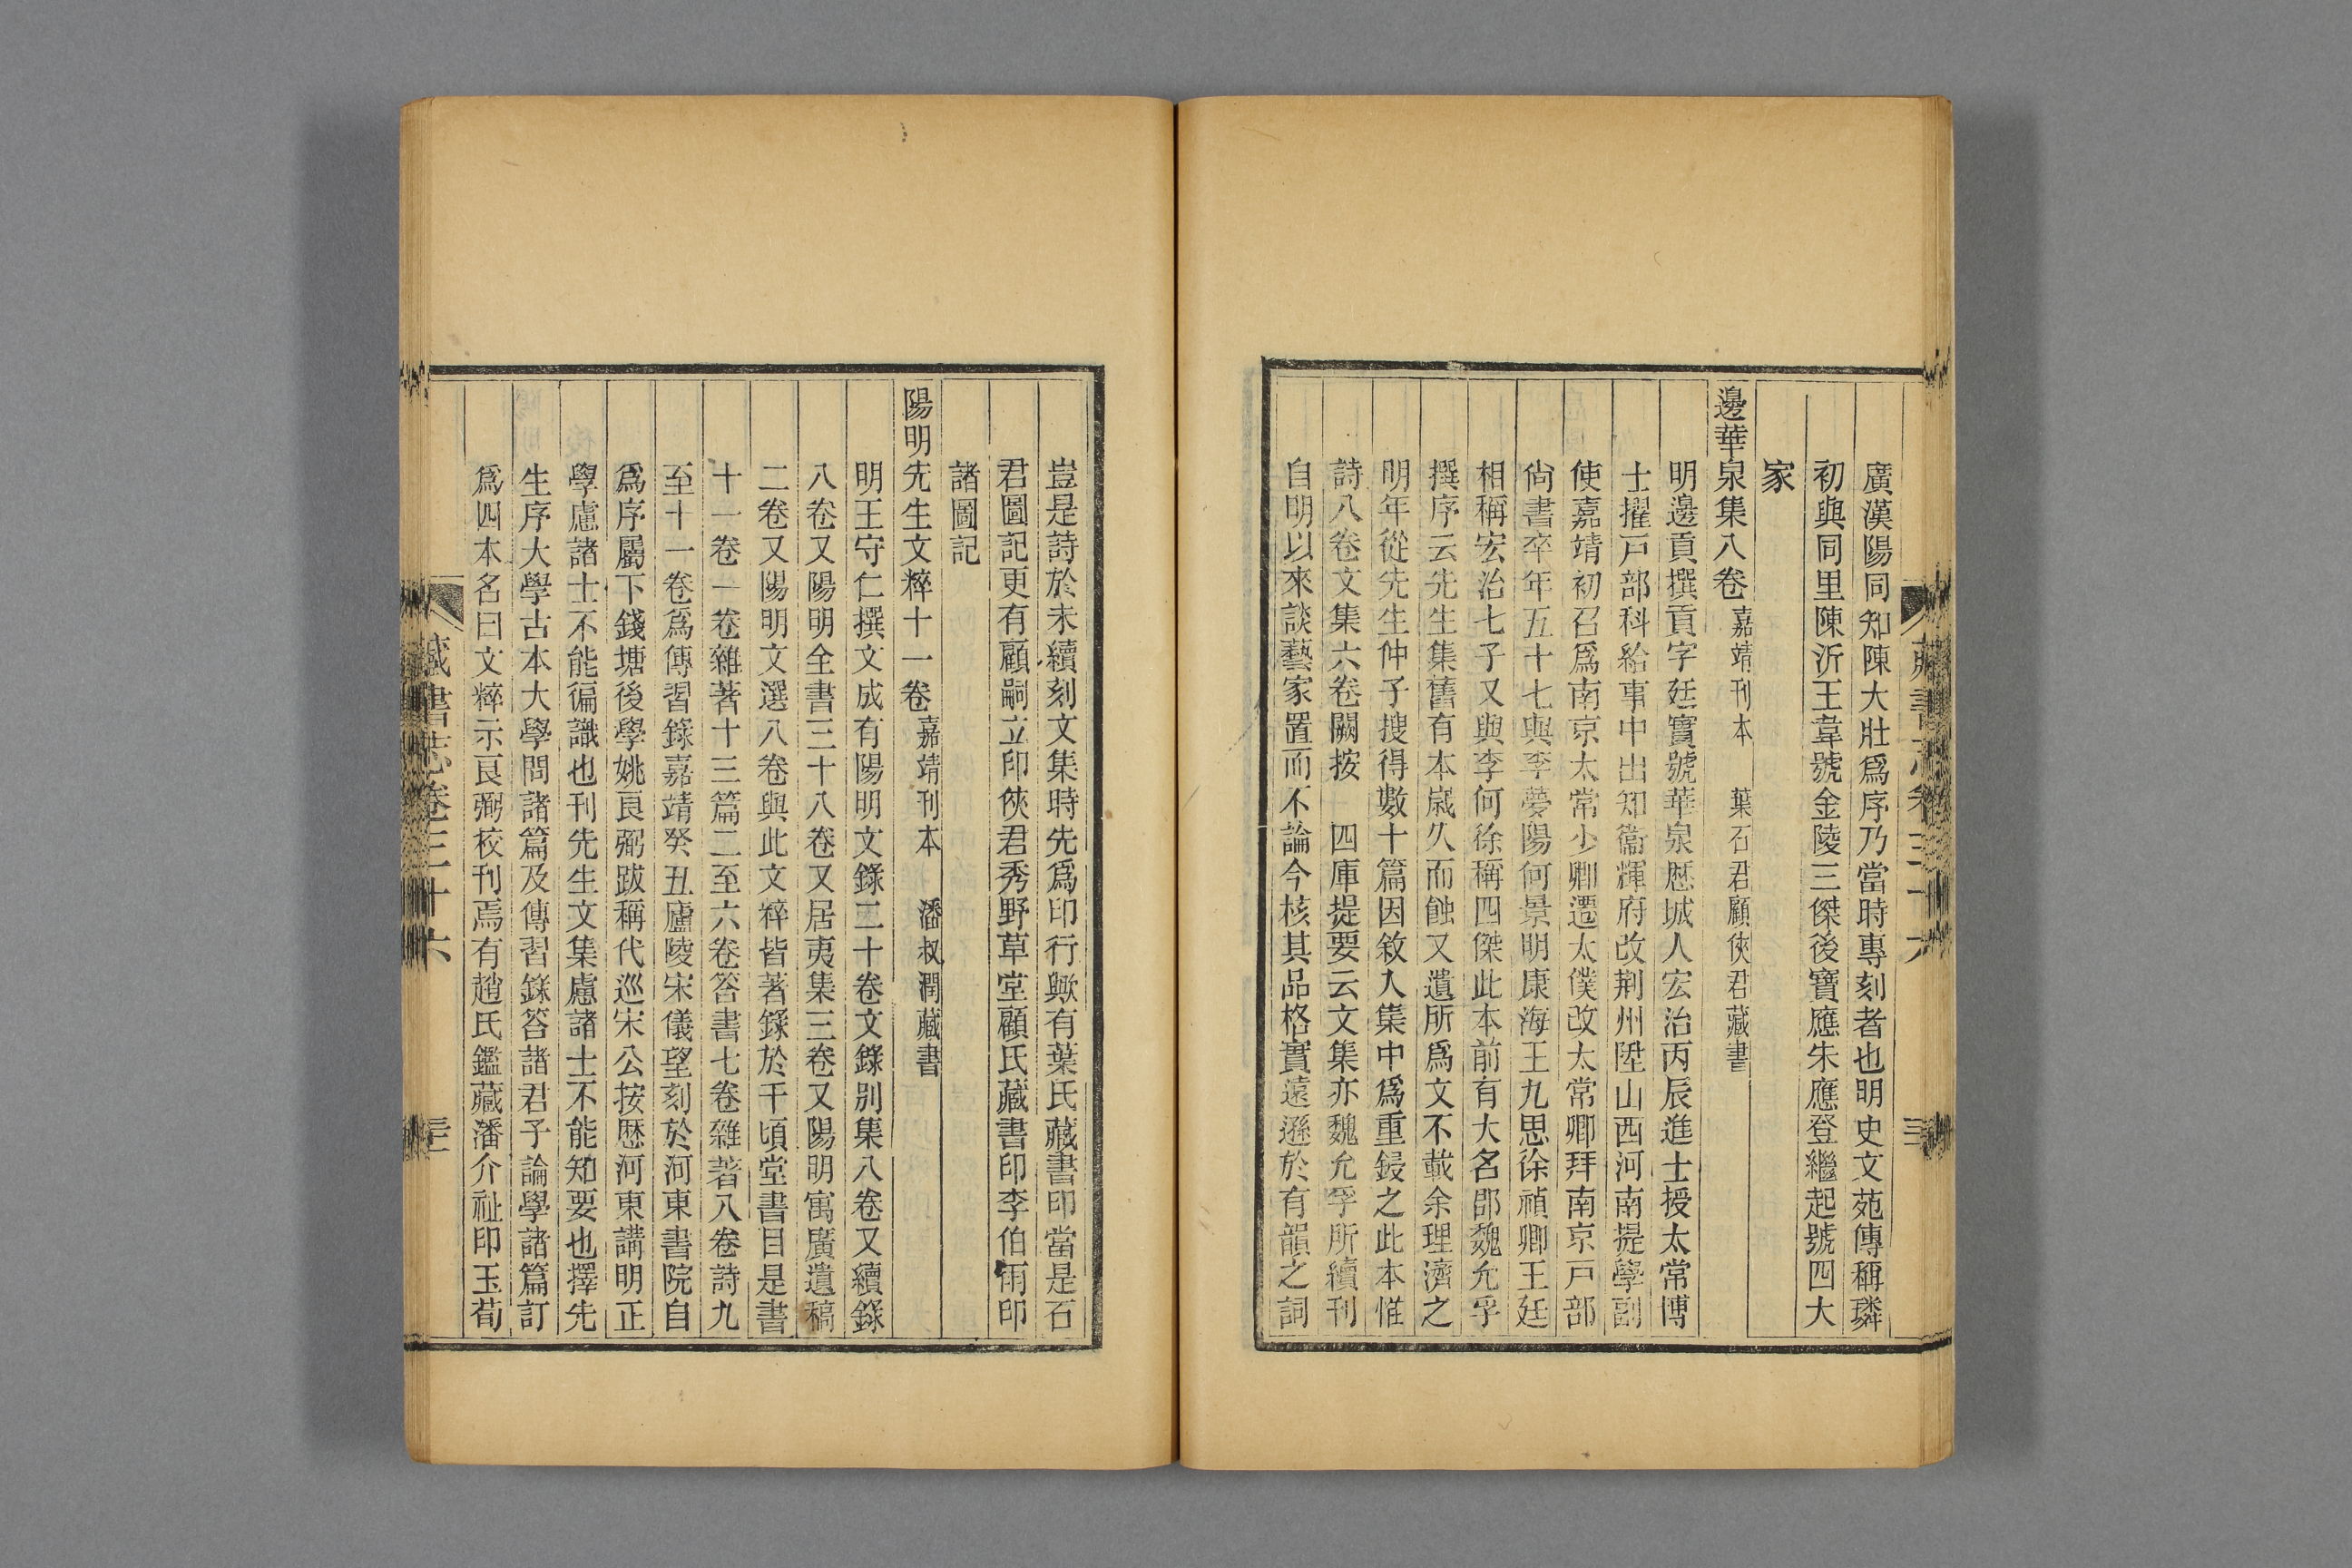 廣漢陽同知陳大壯爲序乃當時專刻者也明史文苑傳稱璘
初與同里陳沂王韋號金陵三傑後寶應朱應登繼起號四大
家
邊華泉集八卷 嘉靖刊本 葉石君顧俠君藏書
明邊貢撰貢字廷實號華泉歷城人宏治丙辰進士授太常博
士擢戸部科給事中出知衞輝府改荆州陞山西河南提學副
使嘉靖初召爲南京太常少卿遷太僕改太常卿拜南京戸部
尙書卒年五十七與李夢陽何景明康海王九思徐禎卿王廷
相稱宏治七子又與李何徐稱四傑此本前有大名郡魏允孚
撰序云先生集舊有本歲久而蝕又遺所爲文不載余理濟之
明年從先生仲子搜得數十篇因敘入集中爲重鋟之此本惟
詩八卷文集六卷闕按 四庫提要云文集亦魏允孚所續刊
自明以來談藝家置而不論今核其品格實遠遜於有韻之詞
藏書志卷三十六 三
豈是詩於未續刻文集時先爲印行歟有葉氏藏書印當是石
君圖記更有顧嗣立印俠君秀野草堂顧氏藏書印李伯雨印
諸圖記
陽明先生文粹十一卷 嘉靖刊本 潘叔潤藏書
明王守仁撰文成有陽明文錄二十卷文錄別集八卷又續錄
八卷又陽明全書三十八卷又居夷集三卷又陽明寓廣遺稿
二卷又陽明文選八卷與此文粹皆著錄於千頃堂書目是書
十一卷一卷雜著十三篇二至六卷答書七卷雜著八卷詩九
至十一卷爲傳習錄嘉靖癸丑廬陵宋儀望刻於河東書院自
爲序屬下錢塘後學姚良弼跋稱代巡宋公按歷河東講明正
學慮諸士不能徧識也刊先生文集慮諸士不能知要也擇先
生序大學古本大學問諸篇及傳習錄答諸君子論學諸篇訂
爲四本名曰文粹示良弼校刊焉有趙氏鑑藏潘介祉印玉荀
藏書志卷三十六 三